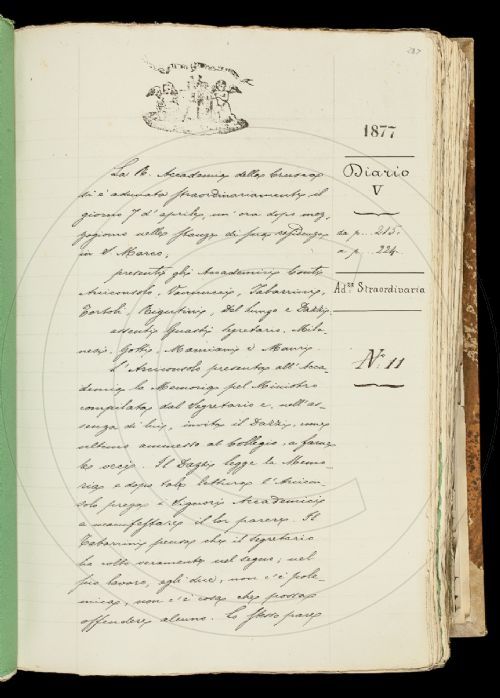 287
1877
Diario
V
da p. 215.
a p. 224.
Ad.za Straordinaria
N.º 11
La R. Accademia della Crusca
si è adunata straordinariamente il
giorno 7 d'aprile, un'ora dopo mez-
zogiorno nelle stanze di sua residenza
in S. Marco,
presenti gli Accademici Conti
Arciconsolo, Vannucci, Tabarrini,
Tortoli, Rigutini, Del Lungo e Dazzi.
assenti Guasti Segretario, Mila-
nesi, Gotti, Mamiani e Mauri.
L'Arciconsolo presenta all'Acca-
demia la Memoria pel Ministro
compilata dal Segretario e, nell'as-
senza di lui, invita il Dazzi, come
ultimo ammesso al Collegio, a farne
le veci. Il Dazzi legge la Memo-
ria e dopo tale lettura l'Arcicon-
solo prega i Signori Accademici
a manifestare il lor parere. Il
Tabarrini pensa che il segretario
ha colto veramente nel segno; nel
suo lavoro, egli dice, non c'è pole-
mica, non c'è cosa che possa
offendere alcuno. Lo stesso pare